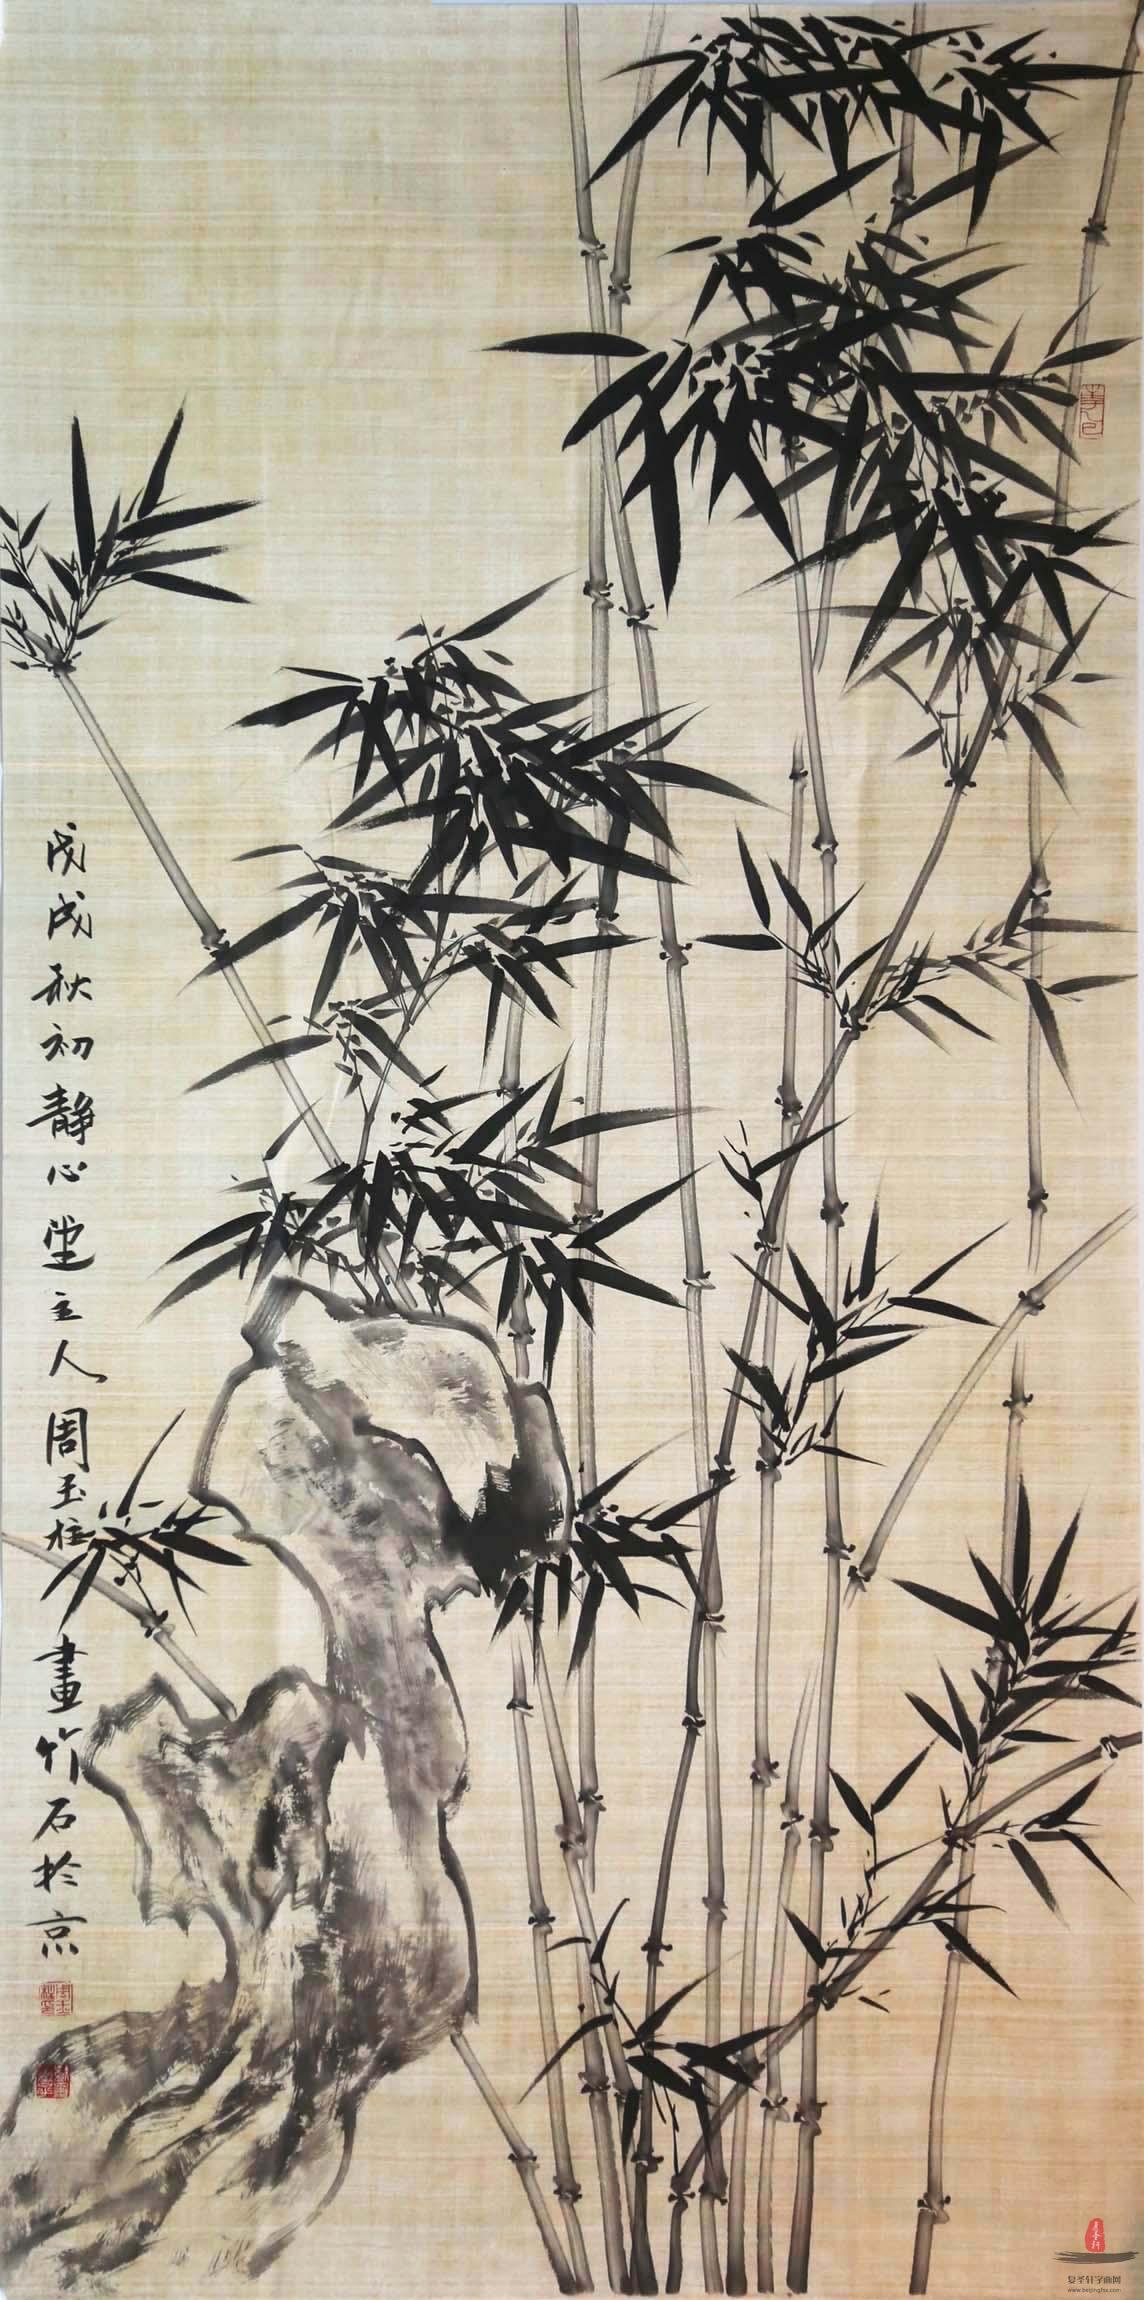 戊戌秋初静心堂主人周玉柱畫竹石於京
复圣轩字画网
www.beijingfsx.com